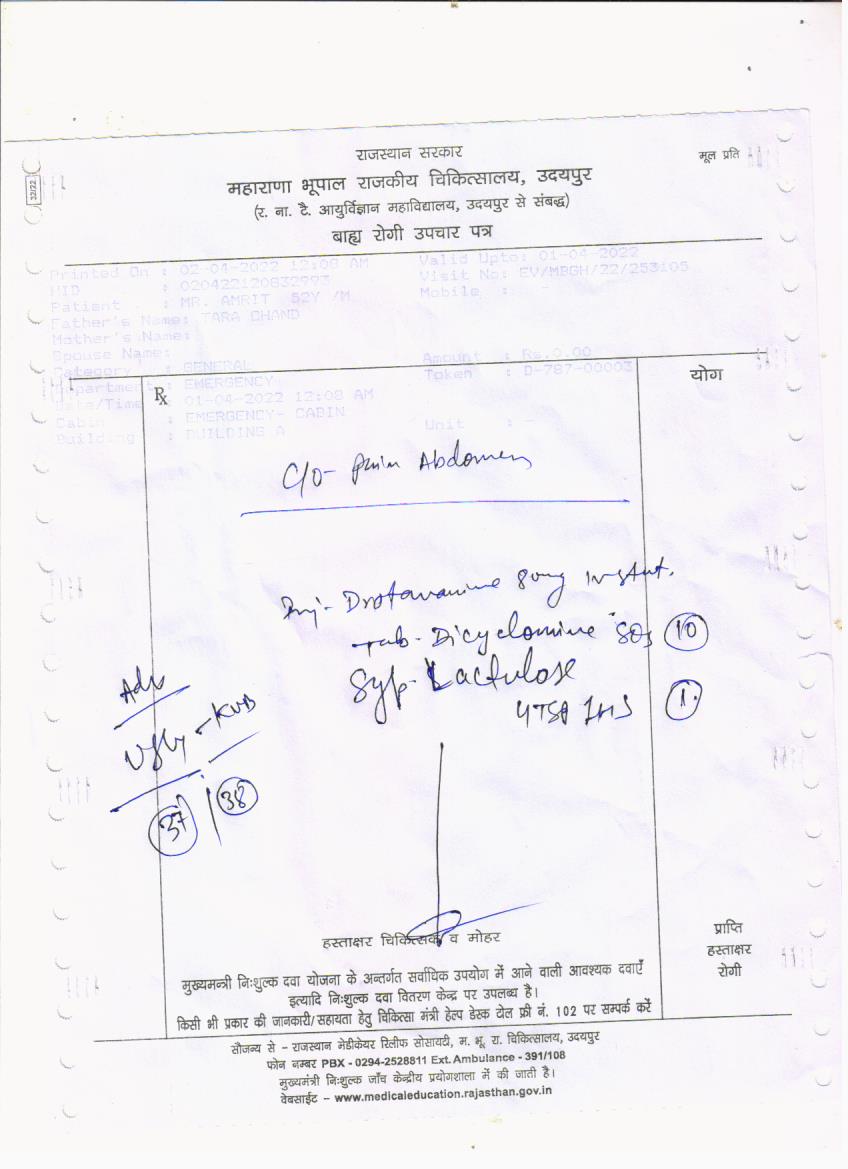 मूल प्रति
राजस्थान सरकार
महाराणा भूपाल राजकीय चिकित्सालय, उदयपुर
(र. ना. टै. आयुर्विज्ञान महाविद्यालय, उदयपुर से संबद्ध)
बाह्य रोगी उपचार पत्र
32/22
Printed On : 02-04-2022 12:08 AM Valid Upto: 01-04-2022
HID : 020422120832993 Visit No: EV/MBGH/22/253105
Patient : MR. AMRIT 52Y /M Mobile : -
Father's Name: TARA CHAND
Mother's Name:
Spouse Name:
Category : GENERAL Amount : Rs.0.00
Department : EMERGENCY Token : D-787-00003
Date/Time : 01-04-2022 12:08 AM
Cabin : EMERGENCY- CABIN
Building : BUILDING A Unit : -
Rx योग
C/O- Pain Abdomen
Inj- Drotavarine 80mg Instat.
Tab- Dicyclomine SOS 10
Syp- Lactulose
4TSF 1HS 1.
Adv
37 / 38
हस्ताक्षर चिकित्सक व मोहर
प्राप्ति
हस्ताक्षर
रोगी
मुख्यमन्त्री निःशुल्क दवा योजना के अन्तर्गत सर्वाधिक उपयोग में आने वाली आवश्यक दवाएँ
इत्यादि निःशुल्क दवा वितरण केन्द्र पर उपलब्ध है।
किसी भी प्रकार की जानकारी/सहायता हेतु चिकित्सा मंत्री हेल्प डेस्क टोल फ्री नं. 102 पर सम्पर्क करें
सौजन्य से – राजस्थान मेडीकेयर रिलीफ सोसायटी, म. भू. रा. चिकित्सालय, उदयपुर
फोन नम्बर PBX - 0294-2528811 Ext. Ambulance - 391/108
मुख्यमंत्री निःशुल्क जाँच केन्द्रीय प्रयोगशाला में की जाती है।
वेबसाईट – www.medicaleducation.rajasthan.gov.in